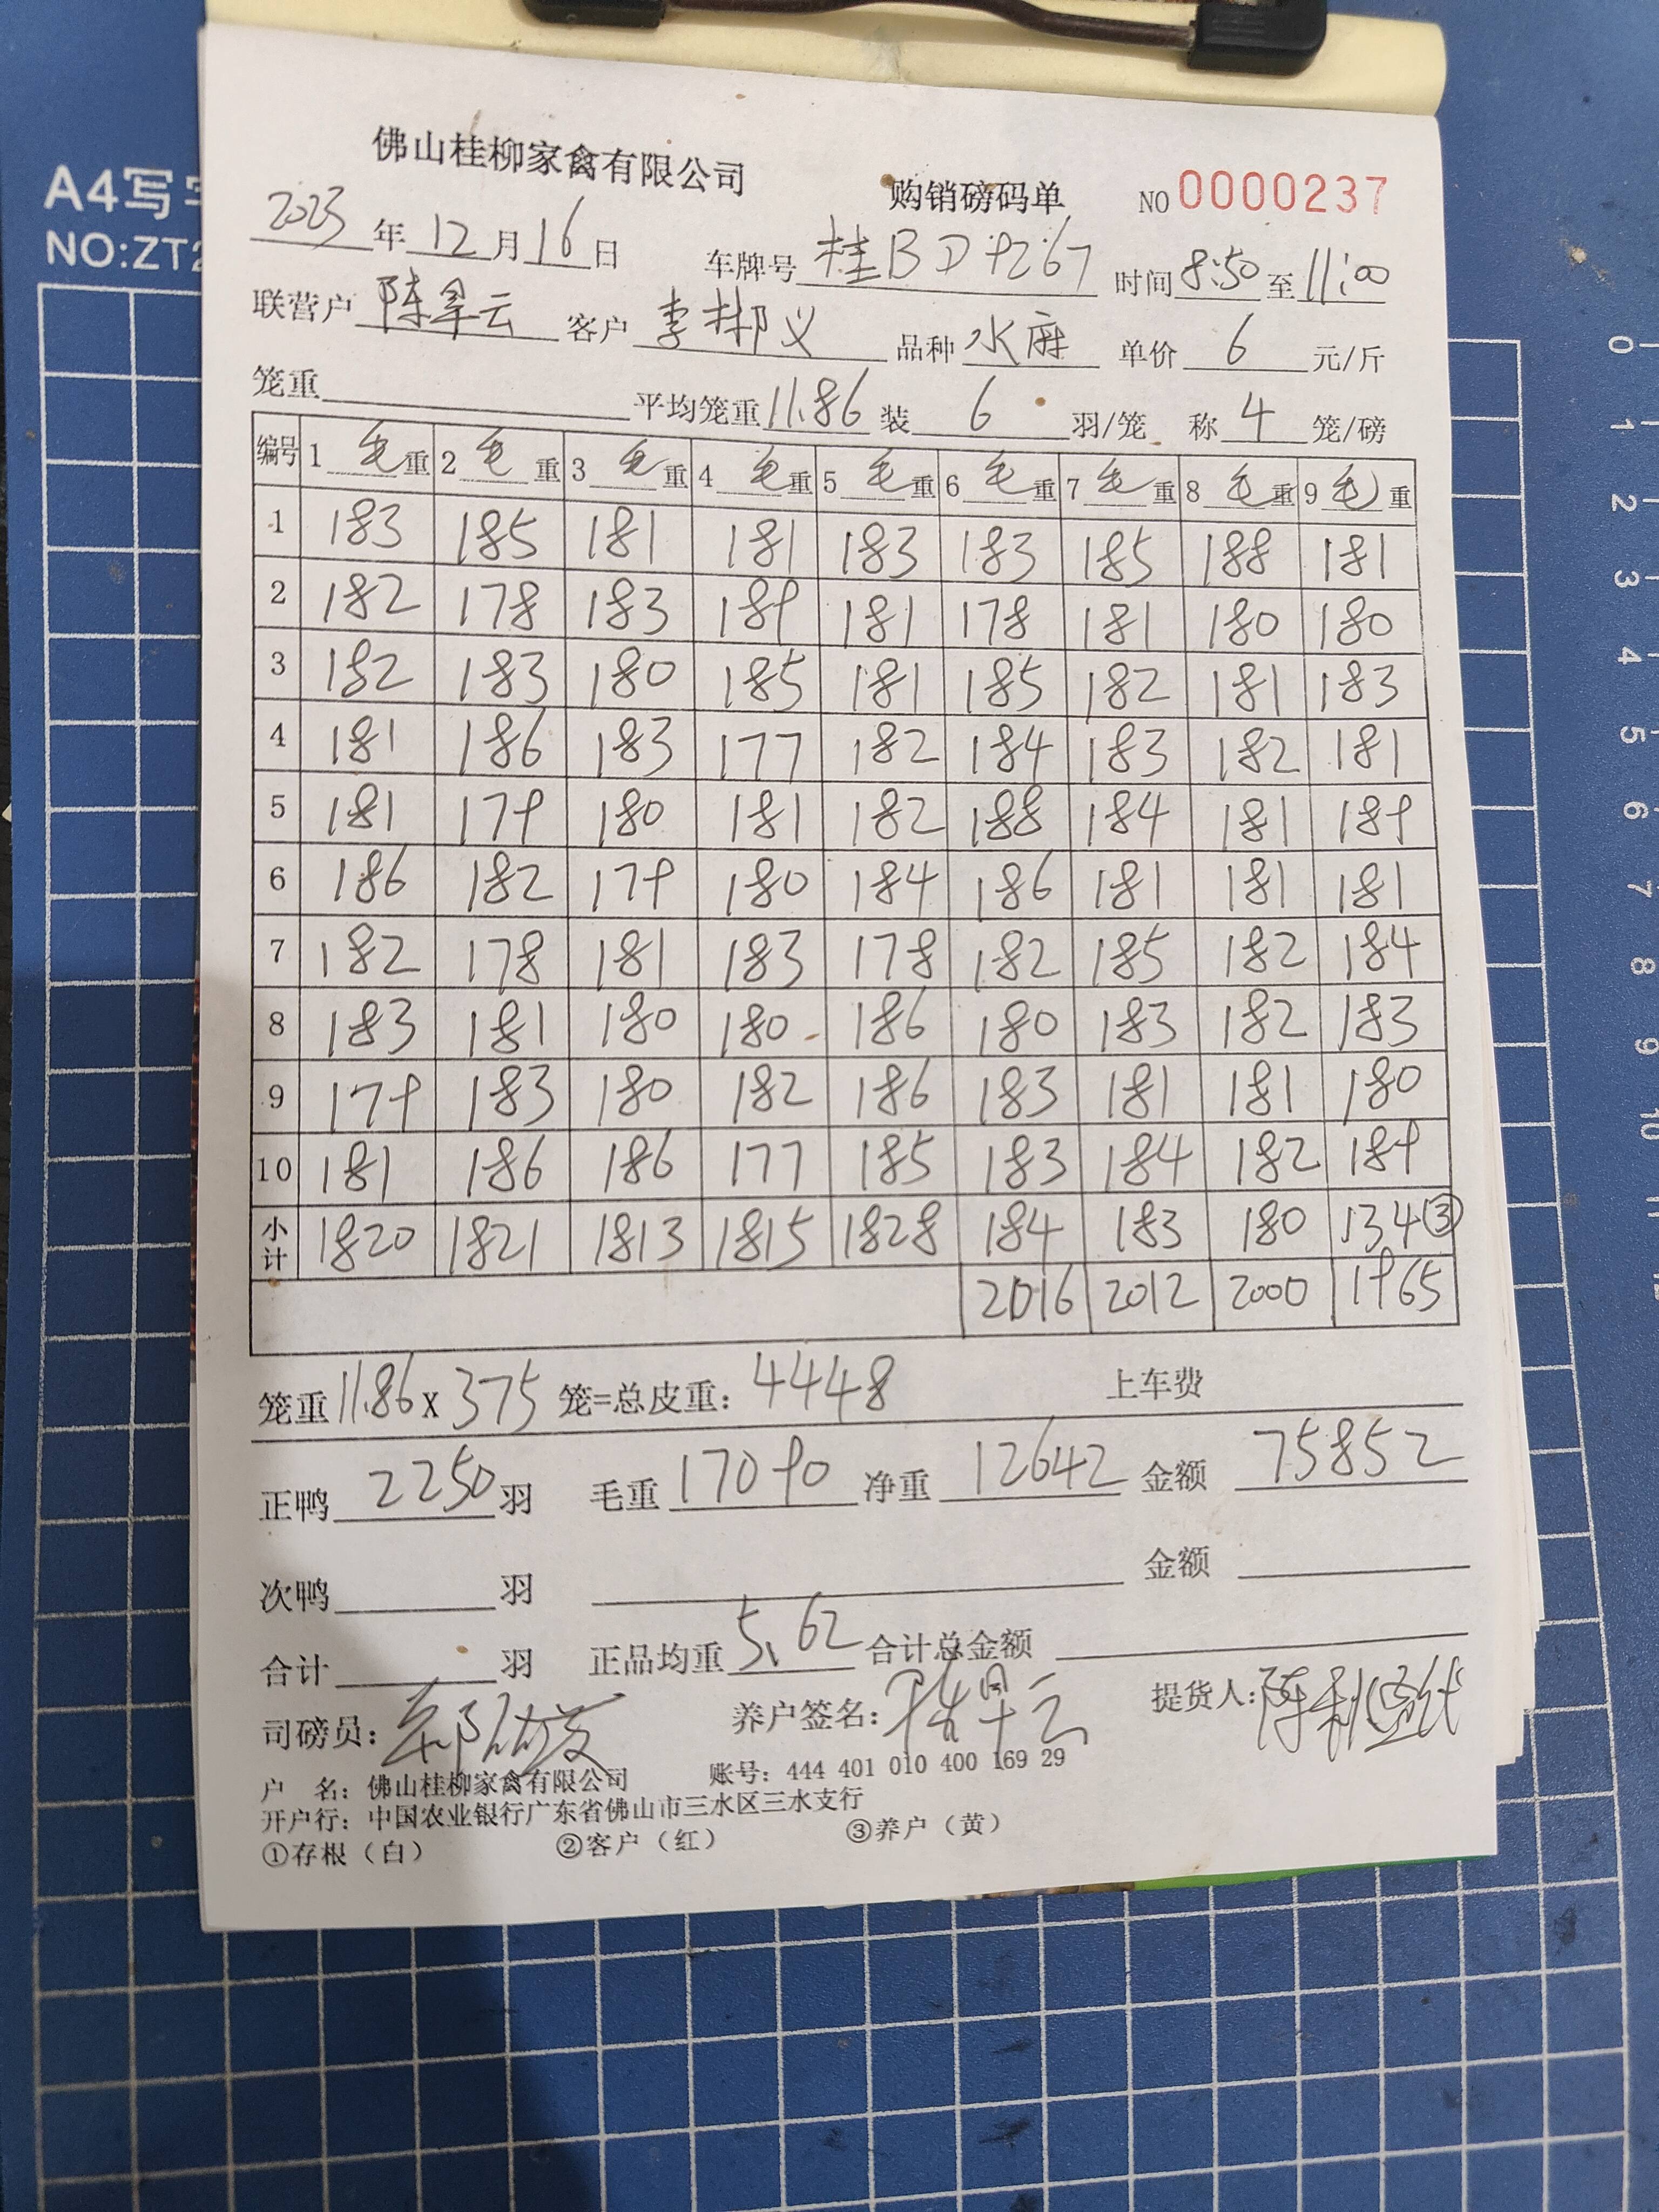 A4写字
NO:ZT2
佛山桂柳家禽有限公司
购销磅码单 NO 0000237
2023年12月16日 车牌号 桂BD9267 时间8:50至11:00
联营户 陈旱云 客户 李彬义 品种 水麻 单价 6 元/斤
笼重 平均笼重11.86 装 6 羽/笼 称 4 笼/磅
编号 1 毛重 2 毛重 3 毛重 4 毛重 5 毛重 6 毛重 7 毛重 8 毛重 9 毛重
1 183 185 181 181 183 183 185 188 181
2 182 178 183 189 181 178 181 180 180
3 182 183 180 185 181 185 182 181 183
4 181 186 183 177 182 184 183 182 181
5 181 179 180 181 182 188 184 181 189
6 186 182 179 180 184 186 181 181 181
7 182 178 181 183 178 182 185 182 184
8 183 181 180 180 186 180 183 182 183
9 179 183 180 182 186 183 181 181 180
10 181 186 186 177 185 183 184 182 189
小计 1820 1821 1813 1815 1828 184 183 180 134③
2016 2012 2000 1965
笼重11.86 X 375 笼=总皮重: 4448 上车费
正鸭 2250 羽 毛重 17090 净重 12642 金额 75852
次鸭 羽 金额
合计 羽 正品均重 5.62 合计总金额
司磅员: 养户签名: 陈旱云 提货人:
户 名: 佛山桂柳家禽有限公司 账号: 444 401 010 400 169 29
开户行: 中国农业银行广东省佛山市三水区三水支行
①存根（白） ②客户（红） ③养户（黄）
0
1
2
3
4
5
6
7
8
9
10
11
12